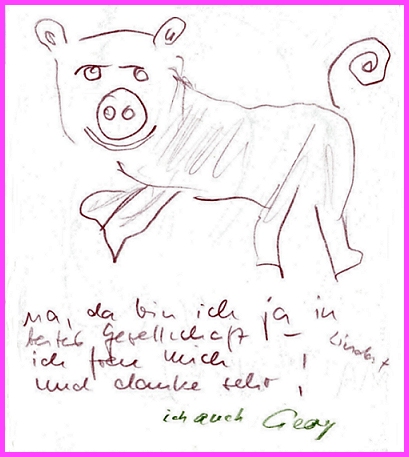 na, da bin ich ja in
bester Gesellschaft –
ich freu mich !
und danke sehr !
ich auch Georg